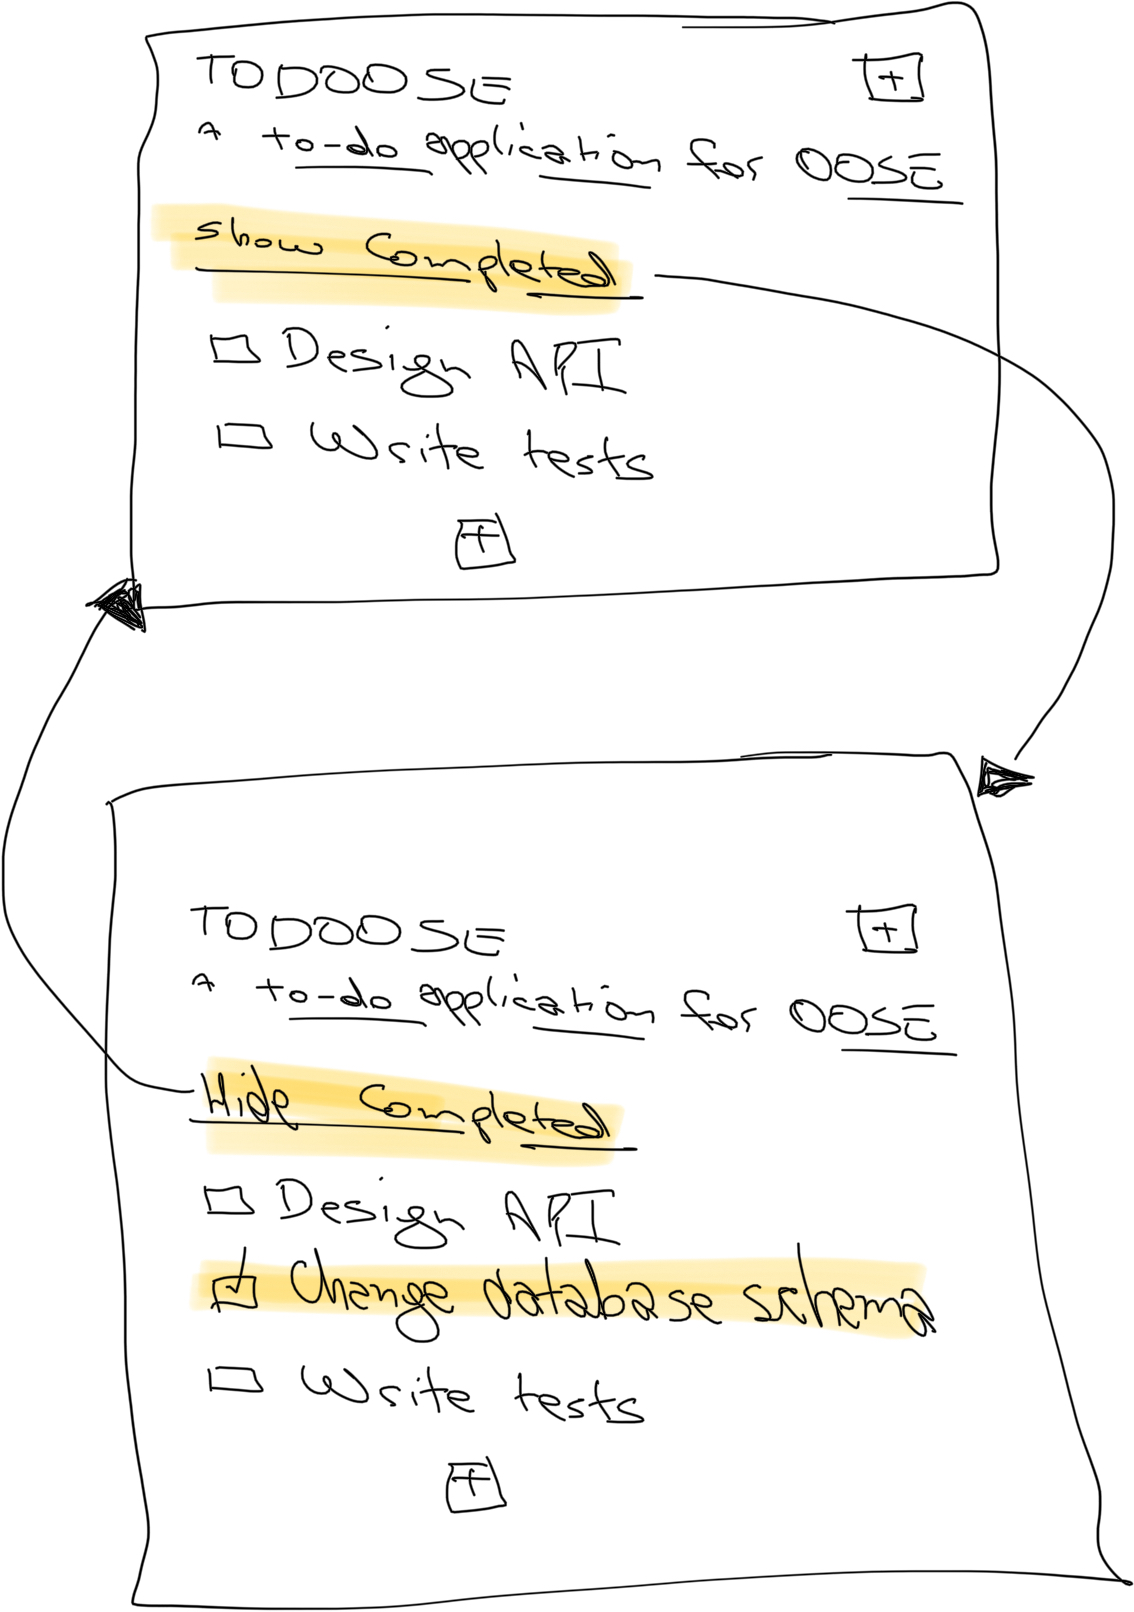 TODOOSE +
A to-do application for OOSE
show Completed
Design API
Write tests
+
TODOOSE +
A to-do application for OOSE
Hide Completed
Design API
Change database schema
Write tests
+